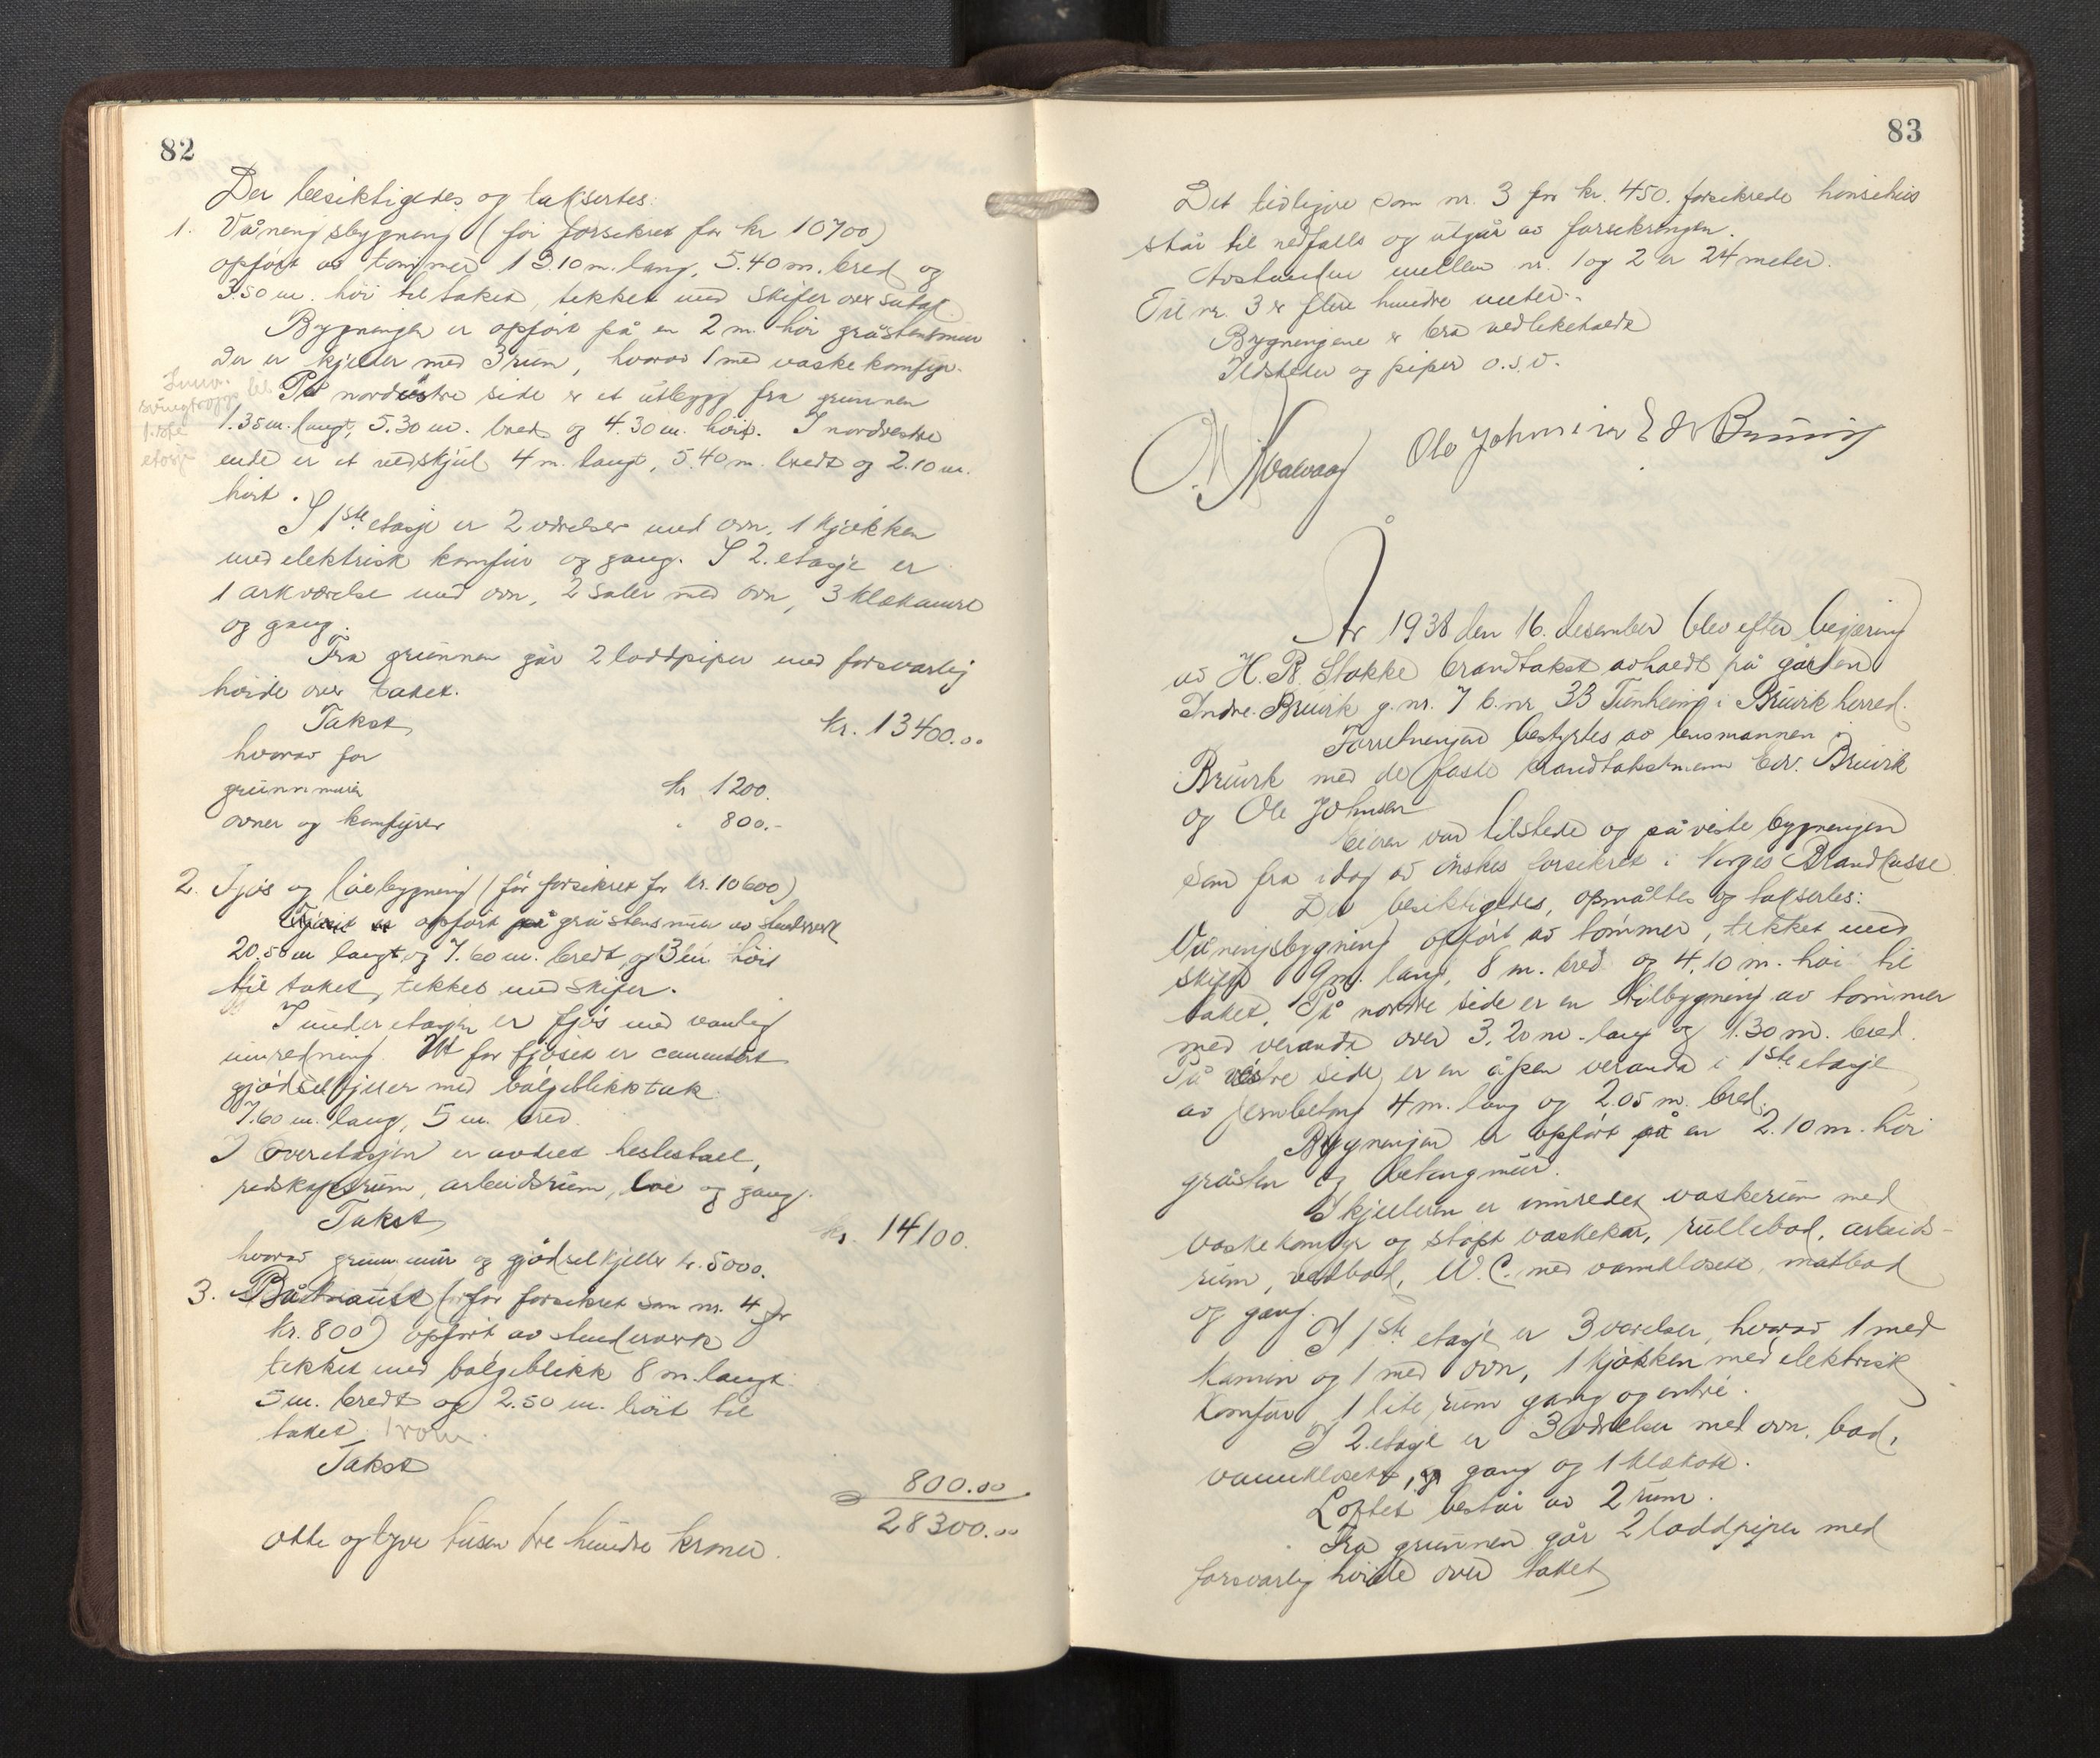 82
Der besiktigedes og taksertes:
1. Våningsbygning (før forsikret for kr 10700)
opført av tømmer 13.10 m. lang, 5.40 m. bred og
3.50 m. høi til taket, tekket med skifer over sutak.
Bygningen er opført på en 2 m. høi gråstensmur
Der er kjeller med 3 rum, hvorav 1 med vaskekomfyr.
På nordøstre side er et utbygg fra grunnen
1.35 m. langt, 5.30 m. bredt og 4.30 m. høit. I nordvestre
ende er et vedskjul 4 m. langt, 5.40 m. bredt og 2.10 m.
høit.
I 1ste etasje er 2 værelser med ovn, 1 kjøkken
med elektrisk komfur og gang. I 2. etasje er
1 arkværelse med ovn, 2 saler med ovn, 3 klækamre
og gang.
Fra grunnen går 2 loddpiper med forsvarlig
høide over taket.
Takst kr. 13400.00
hvorav for
grunnmuren kr 1200.
ovner og komfyrer " 800.-
2. Fjøs og løebygning (før forsikret for kr. 10600)
opført på gråstensmur av stenderverk
20.50 m langt og 7.60 m. bredt og 3 m høit
til taket, tekket med skifer.
I underetasjen er fjøs med vanlig
innredning. Utfor fjøset er cementert
gjødselkjeller med bølgeblikktak
7.60 m. lang, 5 m. bred.
I overetasjen er avdelt hestestall,
redskapsrum, arbeidsrum, løe og gang.
Takst kr. 14100.
hvorav grunnmur og gjødselkjeller kr. 5000.
3. Båtnaust (før forsikret som nr. 4 for
kr. 800) opført av stenderverk
tekket med bølgeblikk 8 m. langt
5 m. bredt og 2.50 m. høit til
taket. 1 rom.
Takst 800.00
28300.00
otte og tyve tusen tre hundre kroner.
83
Det tidligere som nr. 3 for kr. 450. forsikrede hønsehus
står til nedfalls og utgår av forsikringen.
Avstanden mellem nr. 1 og 2 er 24 meter.
Til nr. 3 er flere hundre meter.
Bygningene er bra vedlikeholdt
Ildsteder og piper o.s.v.
Ole Johnsen Edv Bruvik
År 1938 den 16. desember blev efter begjæring
av H. R. Stokke brandtakst avholdt på gården
Indre Bruvik g.nr. 7 b.nr 33 Tunheim i Bruvik herred.
Forretningen bestyrtes av lensmannen i
Bruvik med de faste brandtakstmenn Edv. Bruvik
og Ole Johnsen
Eieren var tilstede og påviste bygningen
som fra idag av ønskes forsikret i Norges Brandkasse
Der besiktigedes, opmåltes og taksertes:
Våningsbygning opført av tømmer, tekket med
skifer 9 m. lang, 8 m. bred og 4,10 m. høi til
taket. På nordre side er en tilbygning av tømmer
med veranda over 3,20 m. lang og 1.30 m. bred.
På vestre side er en åpen veranda i 1ste etasje
av jernbetong 4 m. lang og 2.05 m. bred.
Bygningen er opført på en 2.10 m. høi
gråsten og betongmur.
I kjelleren er innredet vaskerum med
vaskekomfyr og støpt vaskekar, rullebod, arbeids-
rum, vedbod, W.C. med vannklosett, matbod
og gang.
I 1ste etasje er 3 værelser, hvorav 1 med
kamin og 1 med ovn, 1 kjøkken med elektrisk
komfur 1 lite rum gang og entré.
I 2. etasje er 3 værelser med ovn, bad,
vannklosett, gang og 1 klækott.
Loftet består av 2 rum.
Fra grunnen går 2 loddpiper med
forsvarlig høide over taket